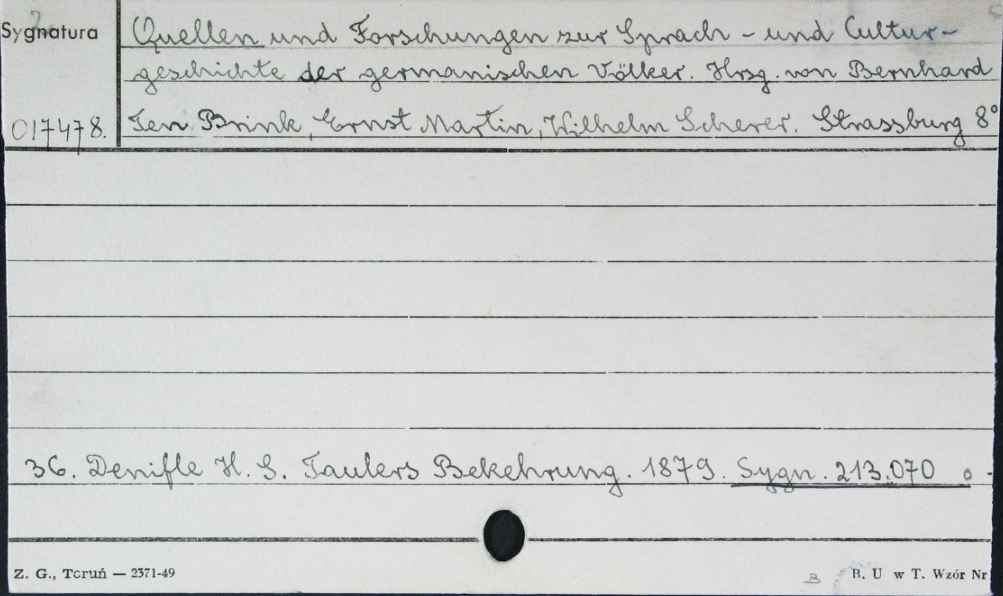 Sygnatura
Quellen und Forschungen zur Sprach - und Cultur-
geschichte der germanischen Völker. Hrsg. von Bernhard
017478.
Ten Brink, Ernst Martin, Wilhelm Scherer. Strassburg 8°
36. Denifle H. S. Taulers Bekehrung. 1879. Sygn. 213.070
Z. G., Toruń — 2371-49
B. U w T. Wzór Nr